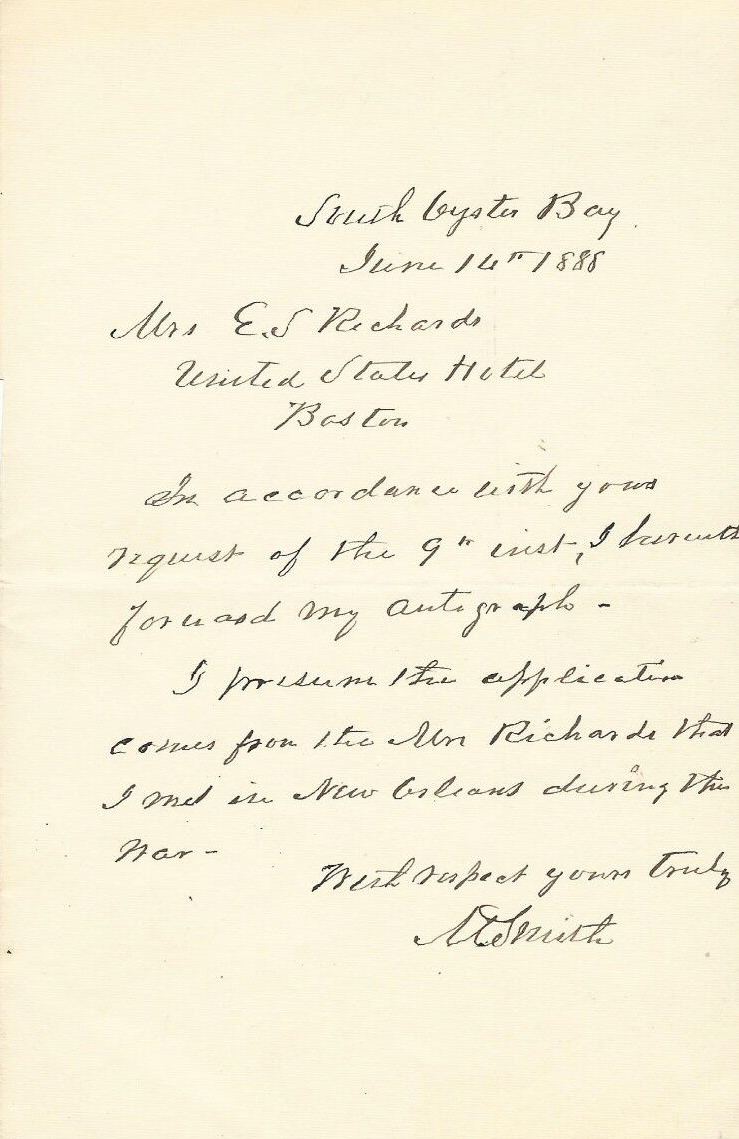 South Oyster Bay
June 14th 1888
Mrs E. S Richards
United States Hotel
Boston
In accordance with your
request of the 9th inst, I herewith
forward my autograph -
I presume the application
comes from the Mrs Richards that
I met in New Orleans during the
War -
With respect yours truly
Smith